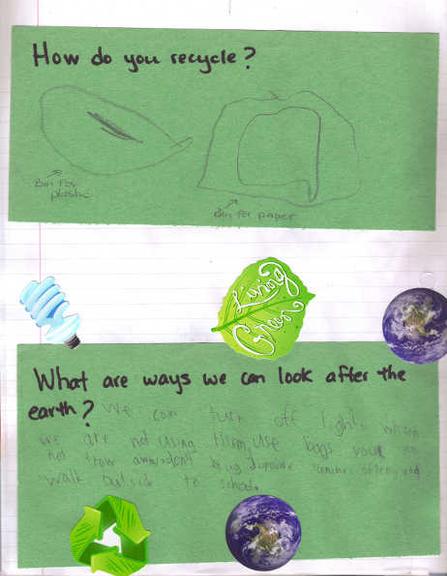 How do you recycle?
Bin for
plastic
Bin for paper
Living
Green
What are ways we can look after the
earth? We can turn off lights when
we are not using them, use bags your
not throw away, dont buy
walk outside to school.